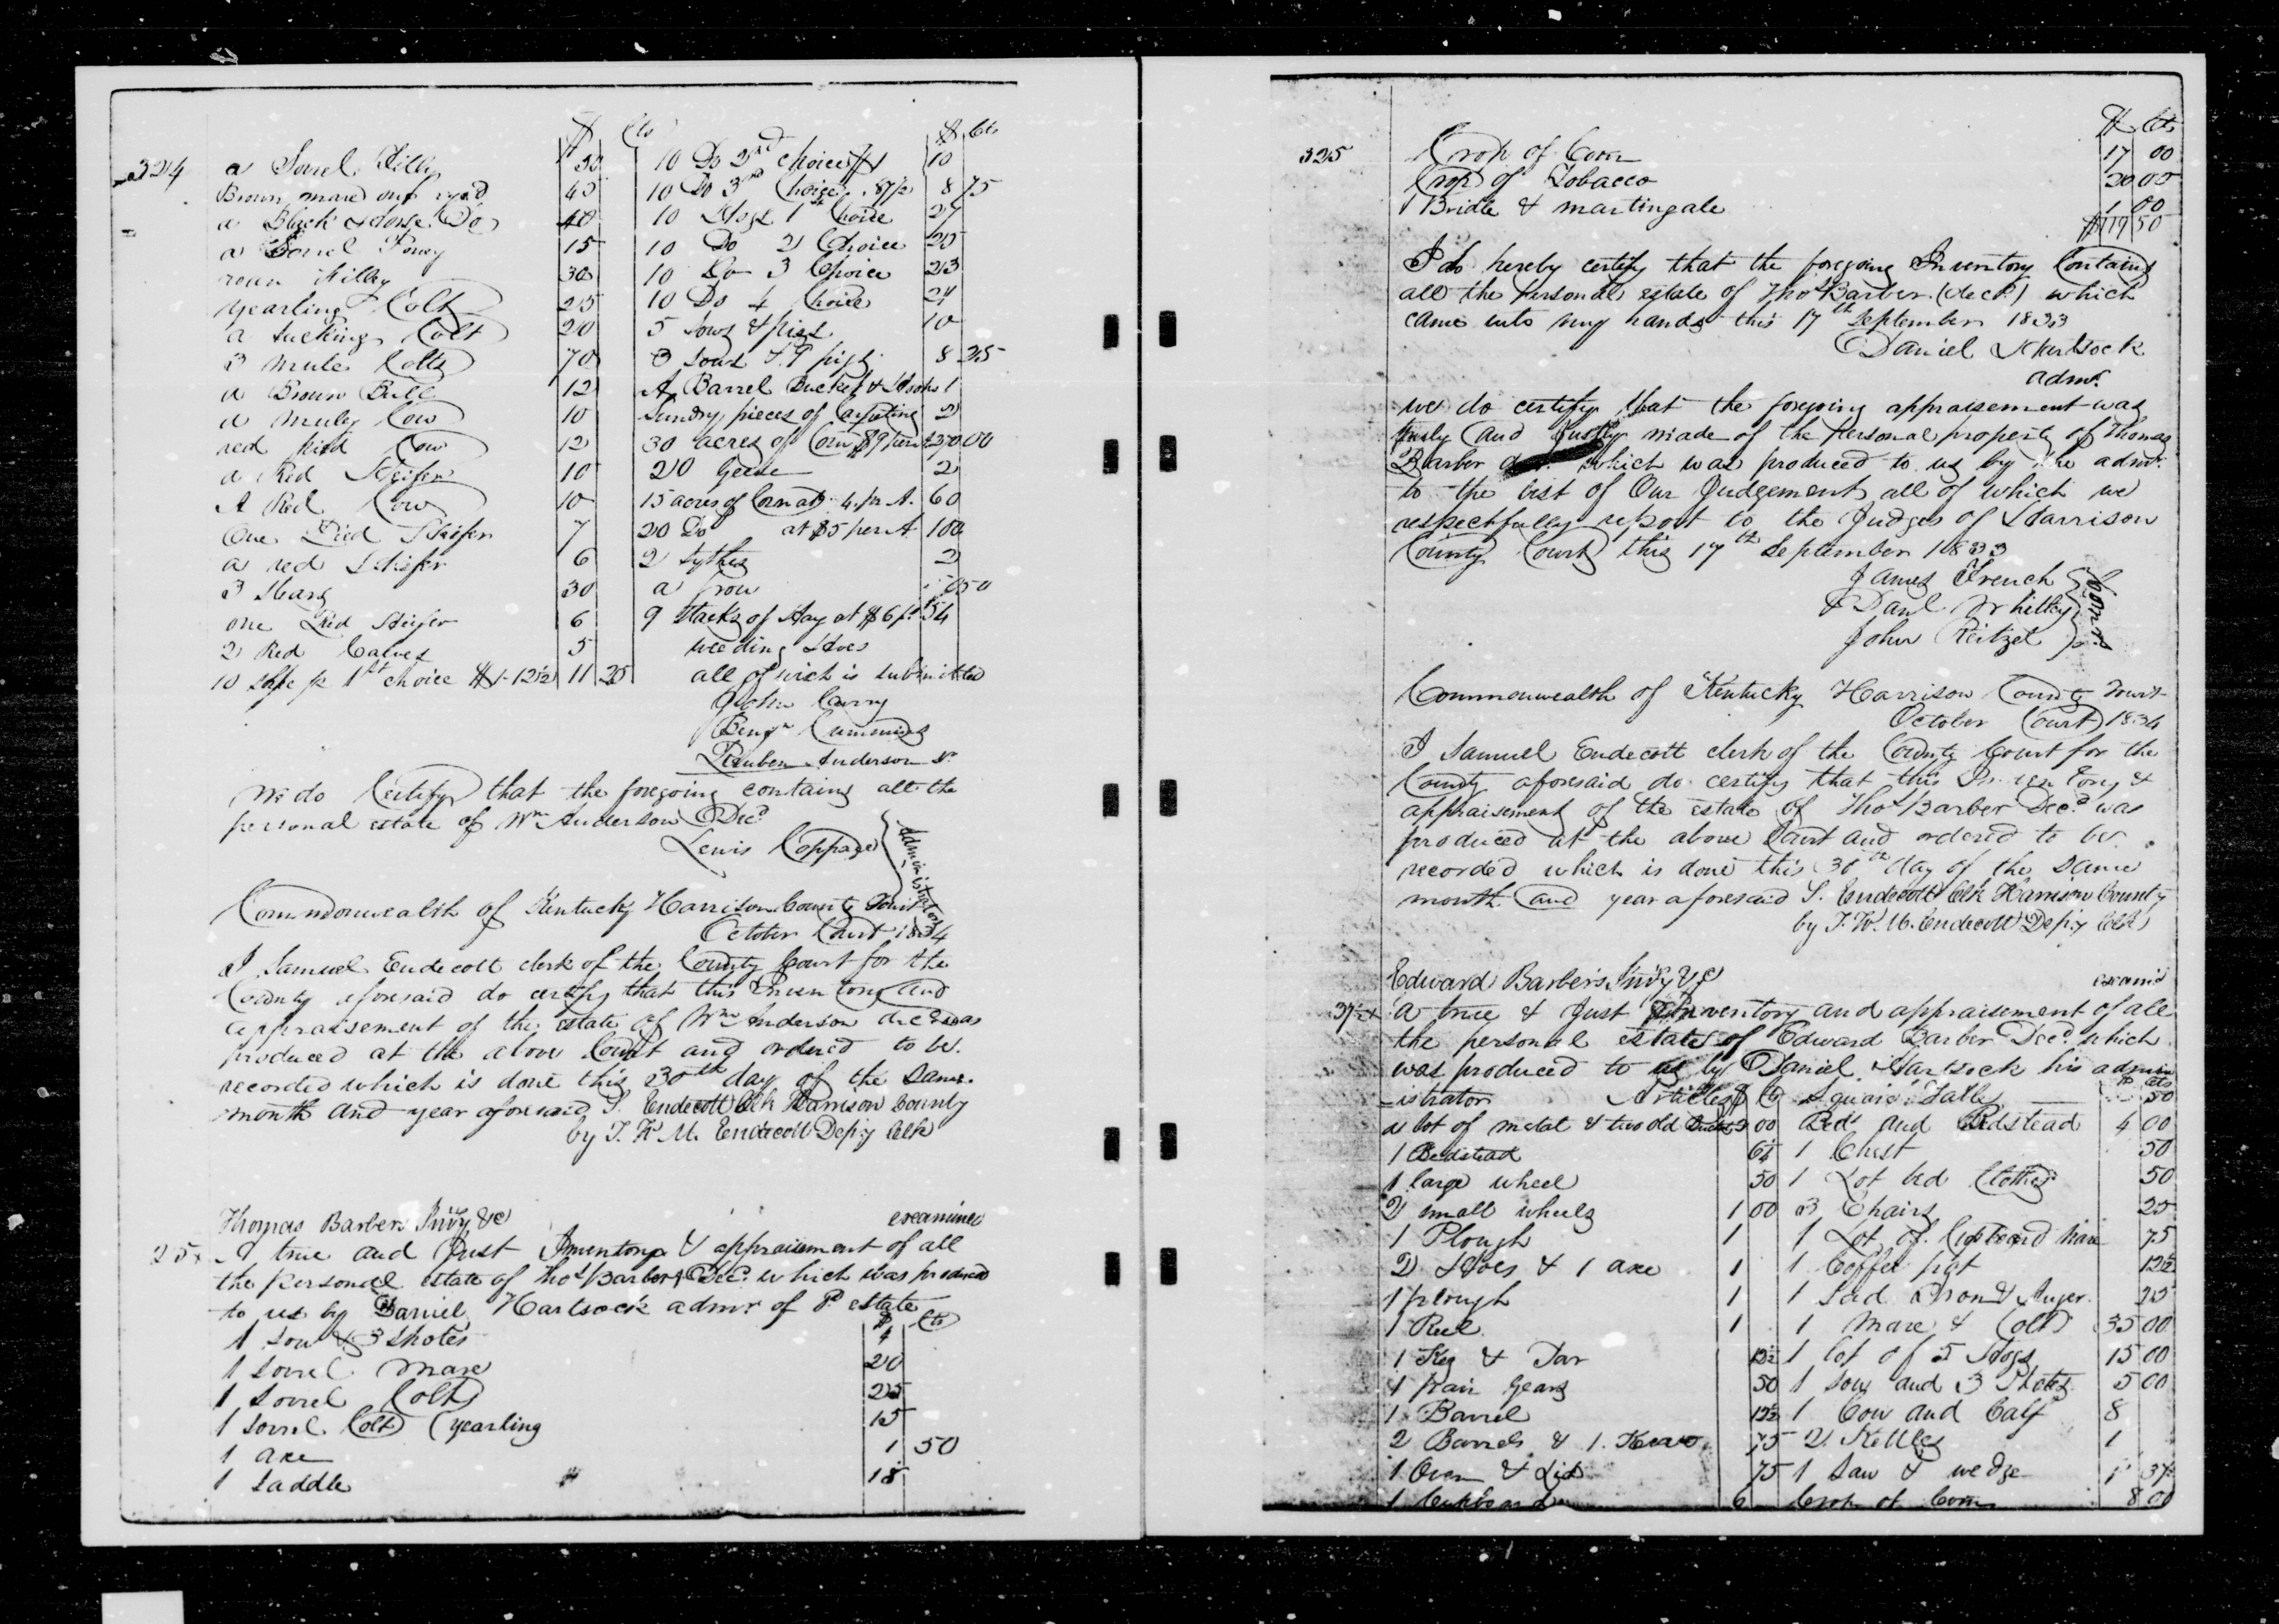 324
$ Cts
a Sorrel Filly 30
Brown mare one eyed 45
a Black Horse Do 40
a Sorrel Poney 15
roan Filley 30
yearling Colt 25
a sucking Colt 20
3 mule Colts 70
a Brown Bull 12
a muley Cow 10
red pied Cow 12
a Red Heifer 10
A Red Cow 10
One Pied Heifer 7
a red Heifer 6
3 Stears 30
one Red Heifer 6
2 Red Calves 5
10 1st choice $1-12½ 11 25
$ Cts
10 Do 2nd choice $1 10
10 Do 3rd Choice 87½ 8 75
10 Hogs 1st Choice 27
10 Do 2 Choice 25
10 Do 3 Choice 23
10 Do 4 Choice 21
5 sows & pigs 10
3 sows & 7 pigs 8 25
A Barrel Bucket & 1
Sundry pieces of 2
30 acres of Corn $9 per 270 00
20 Geese 2
15 acres of Corn at 4 pr A. 60
20 Do at $5 per A 100
2 Sythes 2
a frow 50
9 stacks of Hay at $6 pr 54
weeding Hoes
all of wich is submitted
John Curry
Benjn Cummins
Reuben Anderson Sr
We do Certify that the foregoing contains all the
personal estate of Wm Anderson Decd
Lewis Coppage } administrator
Commonwealth of Kentucky Harrison County Court
October Court 1834
I Samuel Endecott clerk of the County Court for the
County aforesaid do certify that this Inventory and
appraisement of the estate of Wm Anderson decd was
produced at the above Court and ordered to be
recorded which is done this 30th day of the same
month and year aforesaid S. Endecott Clk Harrison County
by J. K. M. Endecott Depy Clk
Thomas Barbers Invy &c examined
25 A true and Just Inventory & appraisement of all
the personal estate of Thos Barber Decd which was produced
to us by Daniel Hartsock admr of sd estate
$ Cts
1 Sow & 3 Shotes 4
1 Sorrel Mare 20
1 Sorrel Colt 25
1 Sorrel Colt (yearling 15
1 axe 1 50
1 Saddle 18
325
$ Cts
Crop of Corn 17 00
Crop of Tobacco 20 00
1 Bridle & martingale 1 00
$119 50
I do hereby certify that the foregoing Inventory Contains
all the personal estate of Thos Barber (decd) which
came into my hands this 17th September 1833
Daniel Hartsock
admr.
we do certify that the foregoing appraisement was
truly and Justly made of the personal property of Thomas
Barber which was produced to us by the admr.
to the best of Our Judgement all of which we
respectfully report to the Judges of Harrison
County Court this 17th September 1833
James French
Danl Whitley
John Reitzel
Commonwealth of Kentucky Harrison County Court
October Court 1834
I Samuel Endecott clerk of the County Court for the
County aforesaid do certify that this Inventory &
appraisement of the estate of Thos Barber Decd was
produced at the above Court and ordered to be
recorded which is done this 30th day of the same
month and year aforesaid S. Endecott Clk Harrison County
by J. K. M. Endecott Depy Clk
Edward Barbers Invy &c examd
37½ A true & Just Inventory and appraisement of all
the personal estate of Edward Barber Decd which
was produced to us by Daniel Hartsock his admin
istrator
Articles $ Cts
a lot of metal & two old 00
1 Bedstead 6¼
1 large wheel 50
2 small wheels 1 00
1 Plough 1
2 Hoes & 1 axe 1
1 plough 1
1 Reel 1
1 Keg & Tar 12½
1 pair Gears 50
1 Barrel 12½
2 Barrels & 1. 75
1 Oven & Lid 75
1 Cupboard 6
$ cts
Square Table 50
Bed and Bedstead 4 00
1 Chest 50
1 Lot bed Clothes 50
3 Chairs 25
1 Lot of Cupboard ware 75
1 Coffee pot 12½
1 Sad Iron & Auger 25
1 Mare & Colt 35 00
1 lot of 5 Hogs 15 00
1 sow and 3 Shotes 5 00
1 Cow and Calf 8
2 Kettles 1
1 Saw & wedge 1 37½
Crop of Corn 8 00